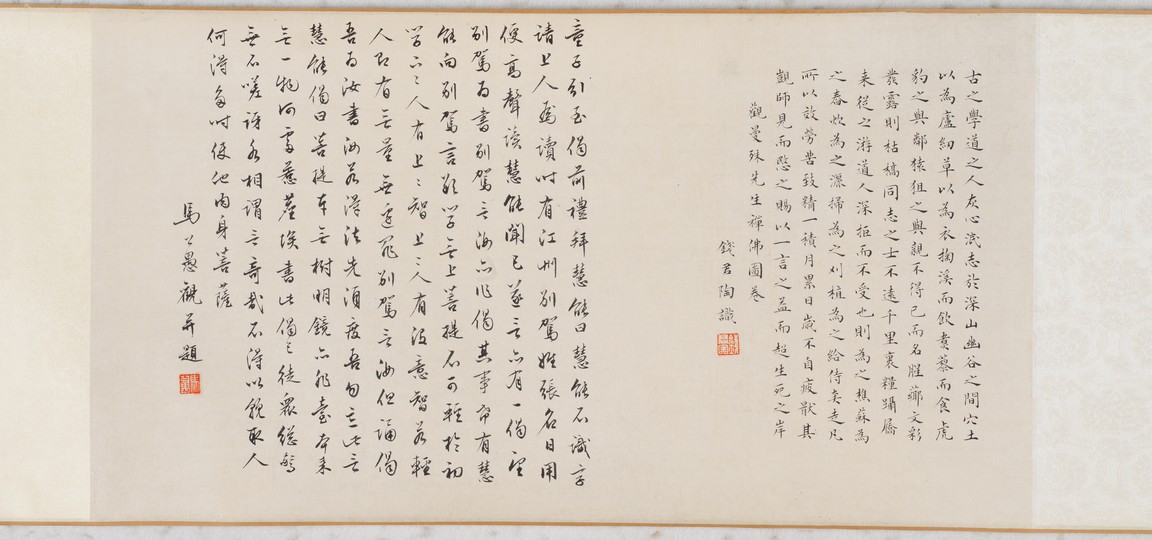 古之學道之人灰心泯志於深山幽谷之間穴土
以為廬紉草以為衣掬溪而飲煮藜而食虎
豹之與鄰猿狙之與親不得已而名腥薌文彩
發露則枯槁同志之士不遠千里裹糧躡屩
来從之游道人深拒而不受也則為之樵蘇為
之舂炊為之灑掃為之刈植為之給侍奔走凡
所以效勞苦致精一積月累日歲不自疲厭其
觀師見而愍之賜以一言之益而超生死之岸
觀曼殊先生禪佛圖卷
錢君陶識
童子引至偈前禮拜慧能曰慧能不識字
請上人為讀時有江州別駕姓張名日用
便高聲讀慧能聞已遂言亦有一偈望
別駕為書別駕言汝亦作偈其事希有慧
能向別駕言欲學無上菩提不可輕於初
學下下人有上上智上上人有沒意智若輕
人即有無量無邊罪別駕言汝但誦偈
吾為汝書汝若得法先須度吾勿忘此言
慧能偈曰菩提本無樹明鏡亦非臺本來
無一物何處惹塵埃書此偈已徒眾總驚
無不嗟訝各相謂言奇哉不得以貌取人
何得多時使他肉身菩薩
馬公愚觀并題